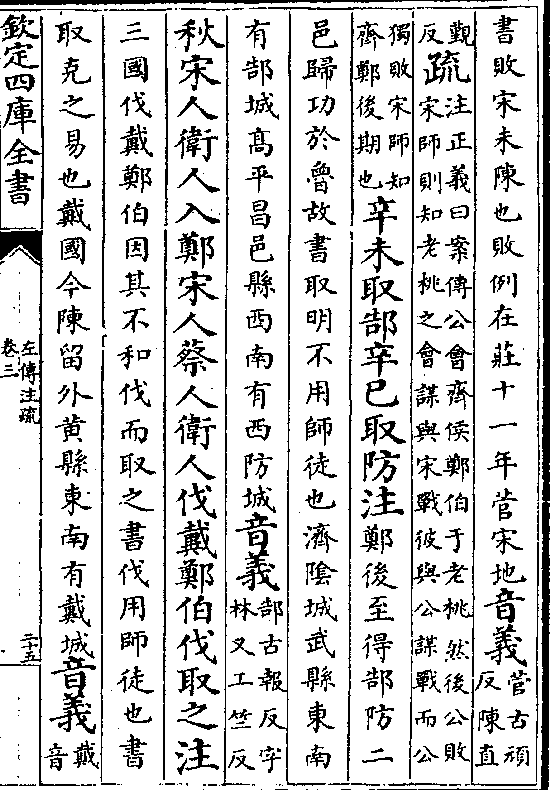 書敗宋未陳也敗例在莊十一年菅宋地音義菅古頑反陳直
觀反疏注正義曰案傳公會齊侯鄭伯于老桃然後公敗宋師則知老桃之會謀與宋戰彼與公謀戰而公
獨敗宋師知齊鄭後期也辛未取郜辛巳取防注鄭後至得郜防二
邑歸功於魯故書取明不用師徒也濟隂城武縣東南
有郜城髙平昌邑縣西南有西防城音義郜古報反字林又工竺反
秋宋人衛人入鄭宋人蔡人衛人伐戴鄭伯伐取之注
三國伐戴鄭伯因其不和伐而取之書伐用師徒也書
取克之易也戴國今陳留外黄縣東南有戴城音義戴音
欽定四庫全書
左傳注疏
卷三
二十五